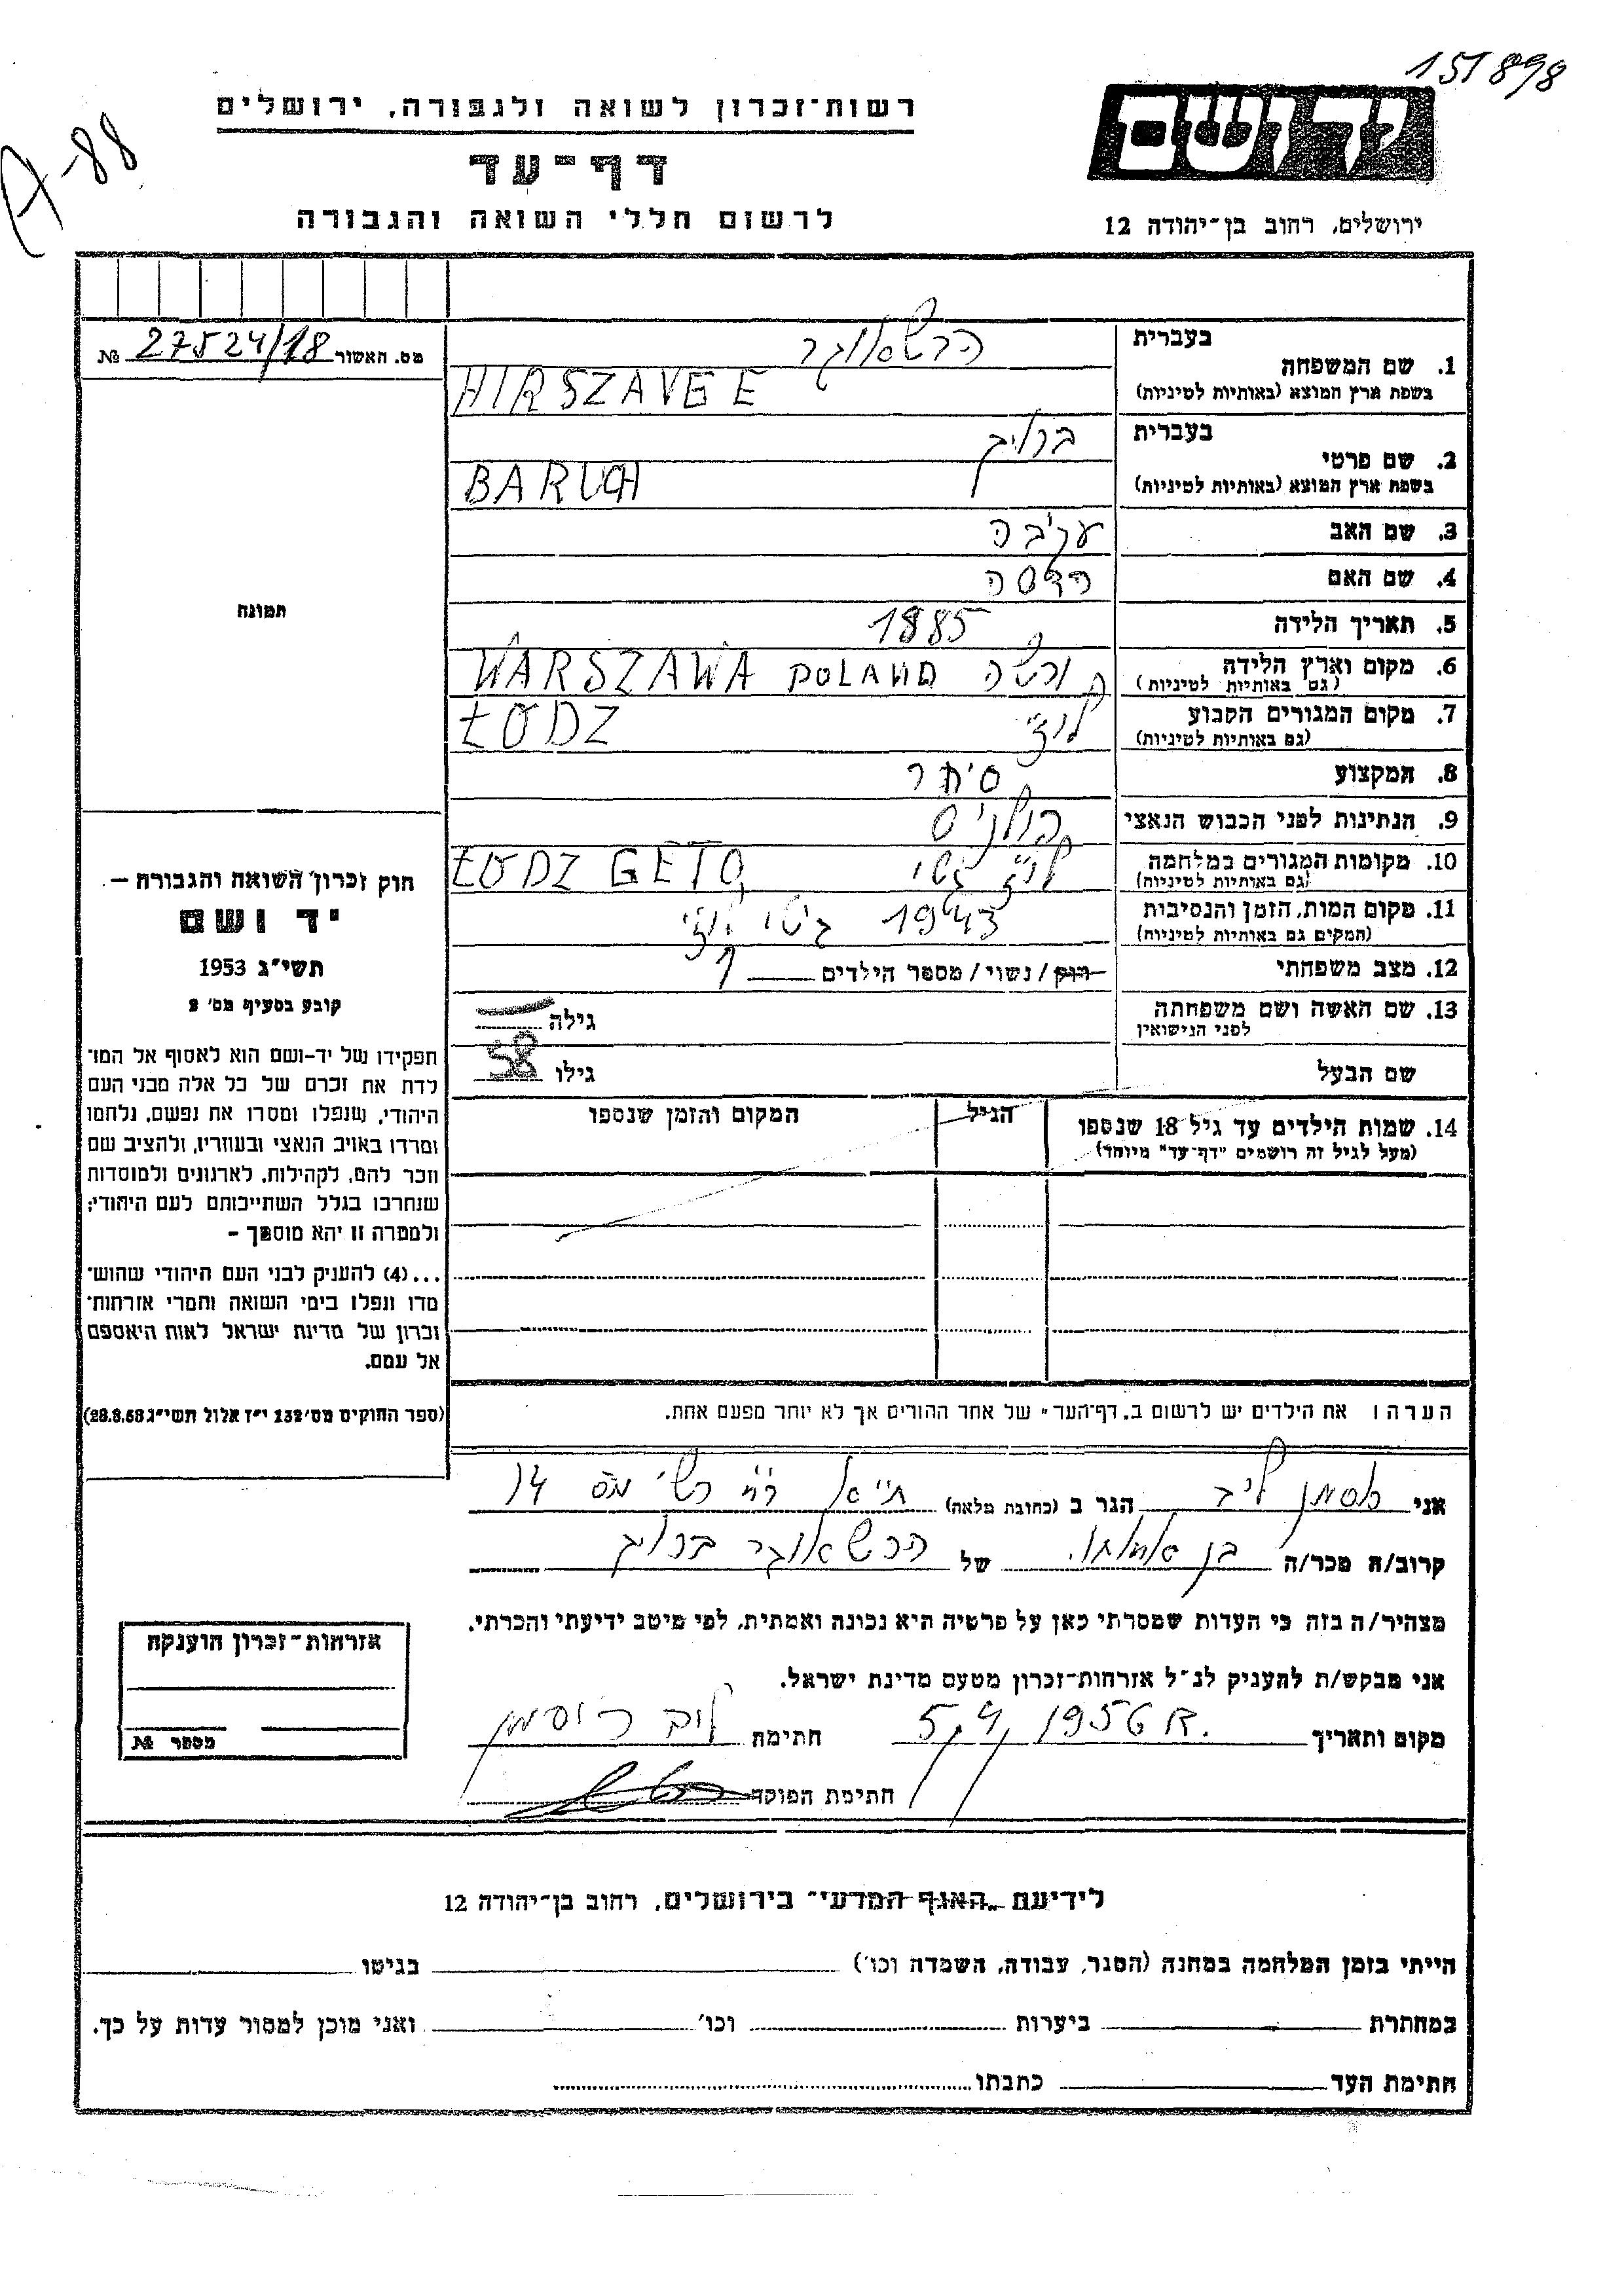 151898
A-88
יד ושם
רשות-זכרון לשואה ולגבורה, ירושלים
דף-עד
לרשום חללי השואה והגבורה
ירושלים, רחוב בן-יהודה 12
מס. האשור 27524/18 №
תמונה
חוק זכרון השואה והגבורה —
יד ושם
תשי"ג 1953
קובע בסעיף מס' 2
תפקידו של יד-ושם הוא לאסוף אל המו־
לדת את זכרם של כל אלה מבני העם
היהודי, שנפלו ומסרו את נפשם, נלחמו
ומרדו באויב הנאצי ובעוזריו, ולהציב שם
וזכר להם, לקהילות, לארגונים ולמוסדות
שנחרבו בגלל השתייכותם לעם היהודי;
ולמטרה זו יהא מוסמך –
...(4) להעניק לבני העם היהודי שהוש־
מדו ונפלו בימי השואה והמרי אזרחות־
זכרון של מדינת ישראל לאות היאספם
אל עמם.
(ספר החוקים מס' 132 י"ז אלול תשי"ג 28.8.53)
בעברית הרשאוגר
1. שם המשפחה
בשפת ארץ המוצא (באותיות לטיניות) HIRSZAVGE
בעברית ברוך
2. שם פרטי
בשפת ארץ המוצא (באותיות לטיניות) BARUCH
3. שם האב עקיבה
4. שם האם הדסה
5. תאריך הלידה 1885
6. מקום וארץ הלידה ורשה WARSZAWA POLAND
(גם באותיות לטיניות)
7. מקום המגורים הקבוע לודז' ŁODZ
(גם באותיות לטיניות)
8. המקצוע סוחר
9. הנתינות לפני הכבוש הנאצי
10. מקומות המגורים במלחמה לודז גטו ŁODZ GETO
(גם באותיות לטיניות)
11. מקום המות, הזמן והנסיבות 1943 גיטו לודז'
(המקום גם באותיות לטיניות)
12. מצב משפחתי רוק / נשוי / מספר הילדים 1
13. שם האשה ושם משפחתה גילה
לפני הנישואין
שם הבעל גילו 58
14. שמות הילדים עד גיל 18 שנספו הגיל המקום והזמן שנספו
(מעל לגיל זה רושמים "דף-עד" מיוחד)
הערה: את הילדים יש לרשום ב"דף-העד" של אחד ההורים אך לא יותר מפעם אחת.
אני ליב הגר ב (כתובת מלאה) ת"א רח רש"י מס 14
קרוב/ה מכר/ה בן של הרשאוגר ברוך
מצהיר/ה בזה כי העדות שמסרתי כאן על פרטיה היא נכונה ואמתית, לפי מיטב ידיעתי והכרתי.
אני מבקש/ת להעניק לנ"ל אזרחות-זכרון מטעם מדינת ישראל.
מקום ותאריך 5/4/1956 חתימת ליב
חתימת הפוקד
אזרחות-זכרון הוענקה
מספר №
לידיעת "האגף המדעי" בירושלים, רחוב בן-יהודה 12
הייתי בזמן המלחמה במחנה (הסגר, עבודה, השמדה וכו') בגיטו
במחתרת ביערות וכו' ואני מוכן למסור עדות על כך.
חתימת העד כתבתו